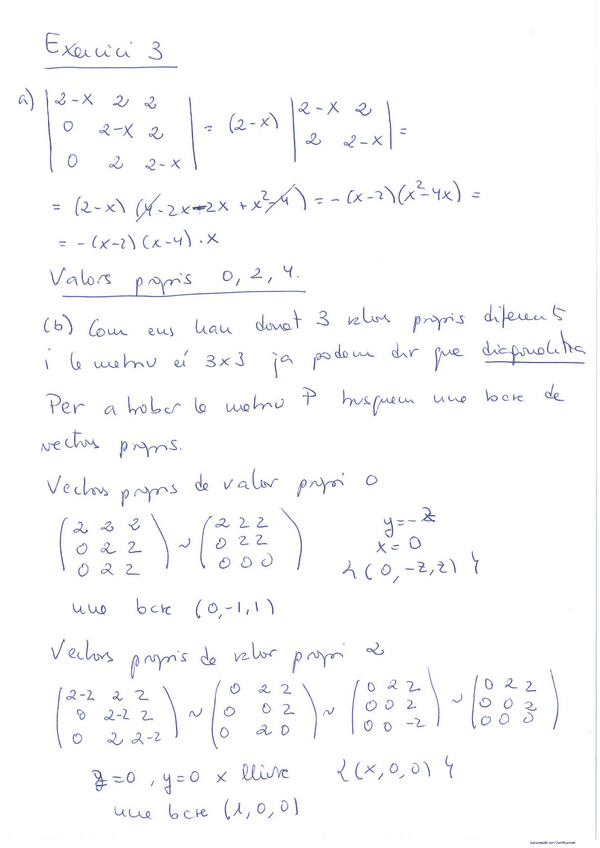 Exercici 3
a) | 2-x 2 2 |
| 0 2-x 2 | = (2-x) | 2-x 2 |
| 0 2 2-x | | 2 2-x | =
= (2-x) (4-2x-2x+x²-4) = -(x-2)(x²-4x) =
= -(x-2)(x-4)·x
Valors propis 0, 2, 4.
(b) Com ens han donat 3 valors propis diferents
i la matriu és 3x3 ja podem dir que diagonalitza
Per a trobar la matriu P busquem una base de
vectors propis.
Vectors propis de valor propi 0
(2 2 2) (2 2 2) y=-z
(0 2 2) ~ (0 2 2) x=0
(0 2 2) (0 0 0) {(0,-z,z)}
una base (0,-1,1)
Vectors propis de valor propi 2
(2-2 2 2) (0 2 2) (0 2 2) (0 2 2)
(0 2-2 2) ~ (0 0 2) ~ (0 0 2) ~ (0 0 2)
(0 2 2-2) (0 2 0) (0 0 -2) (0 0 0)
z=0, y=0 x lliure {(x,0,0)}
una base (1,0,0)